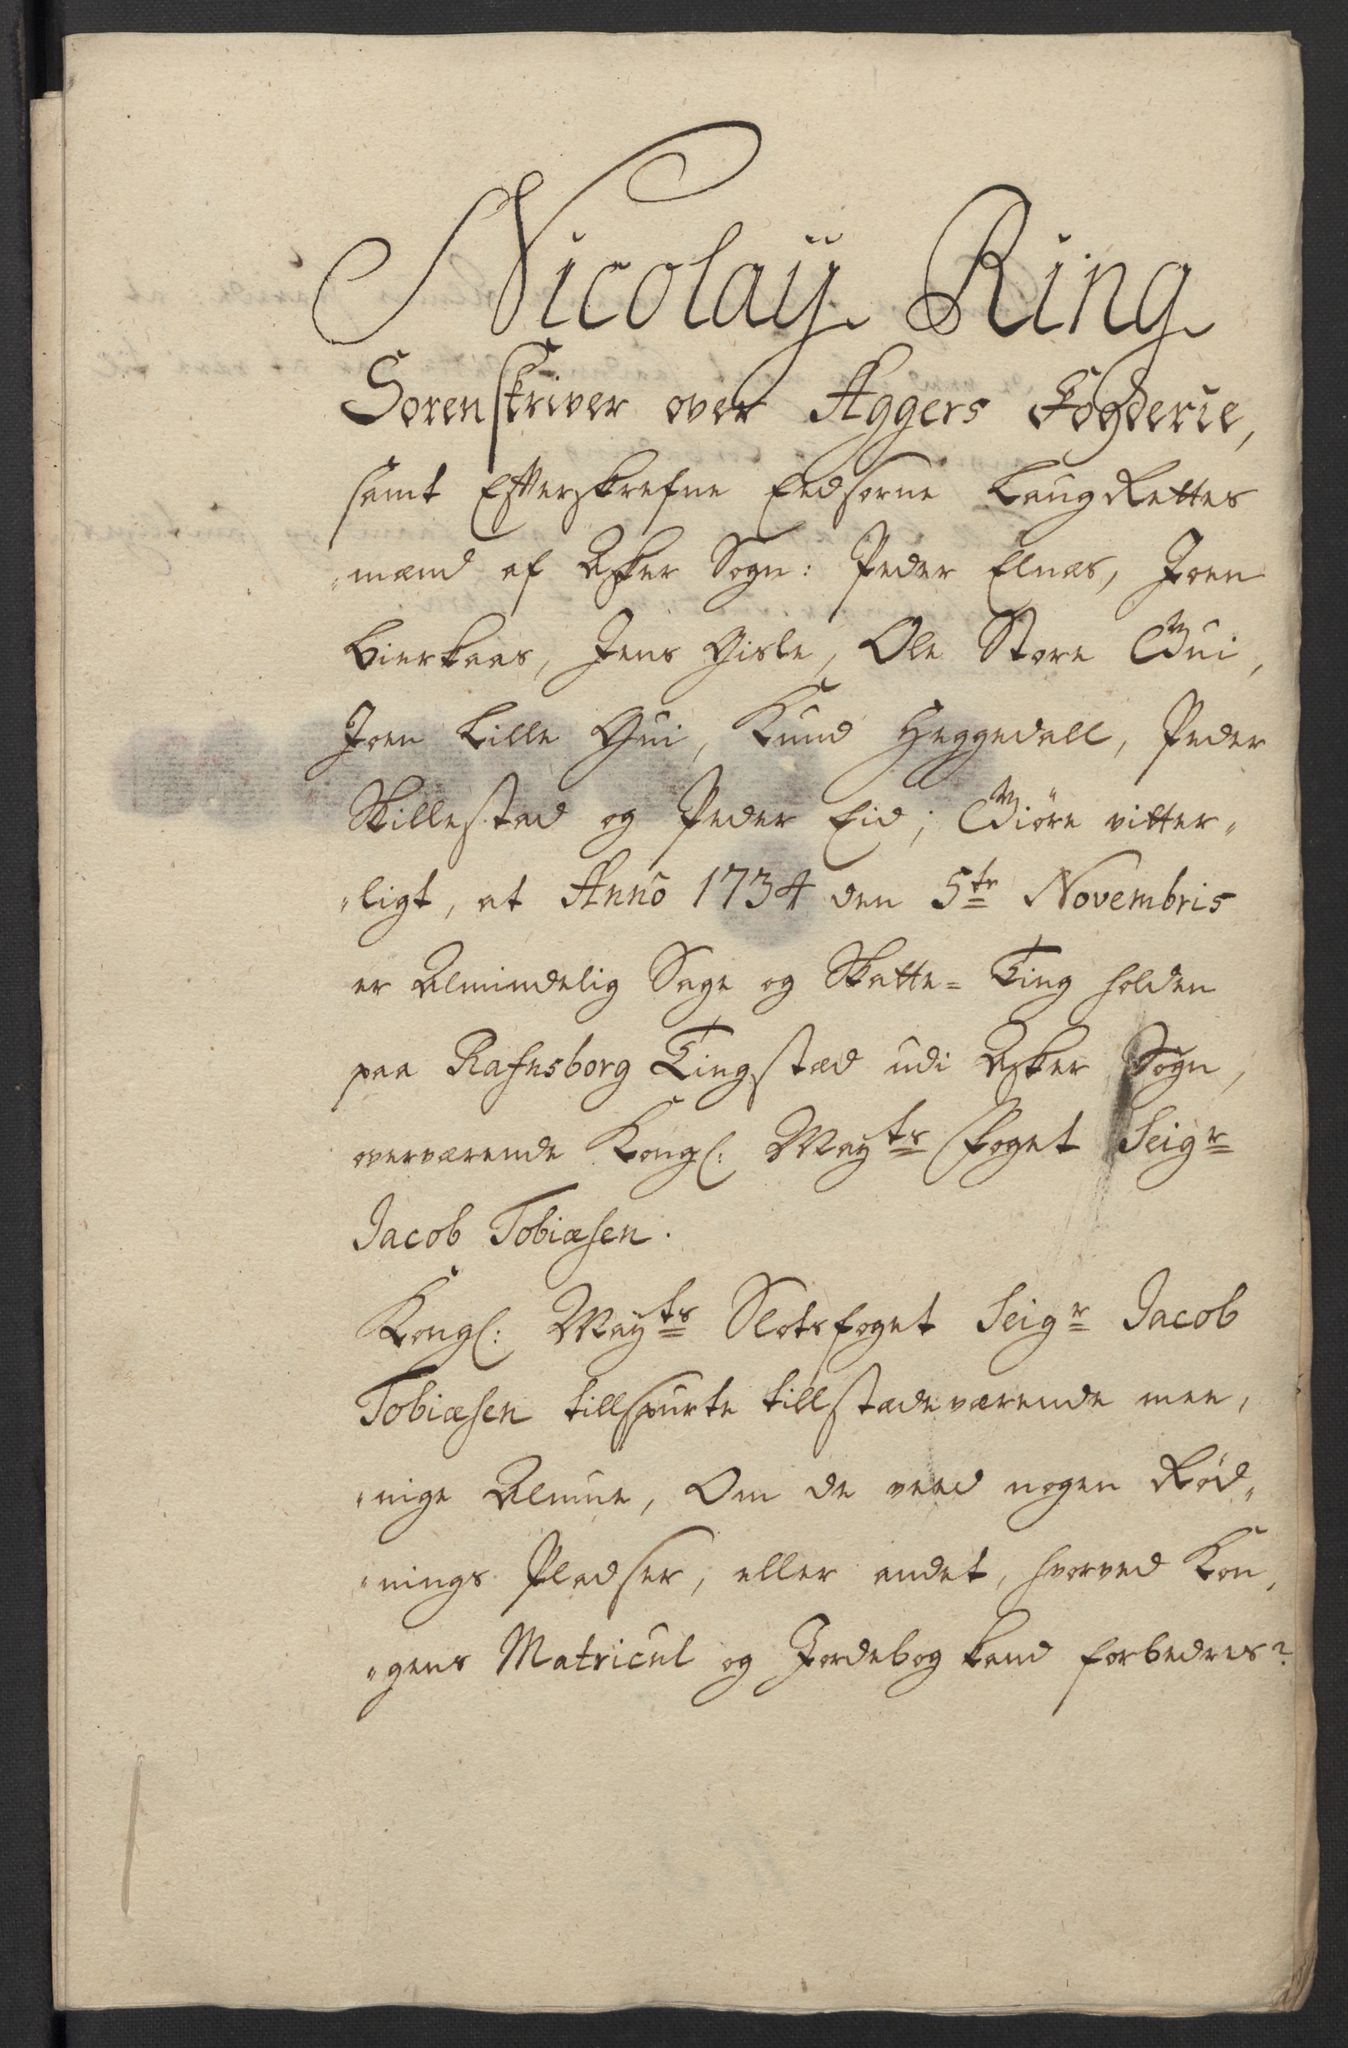 Nicolaÿ Ring
Sorenskriver over Aggers Fogderie,
samt Effterskrefne Eedsorne LaugRettes
mænd af Asker Sogn: Peder Elnæs, Joen
Bierkaas, Jens Gisle, Ole Store Gui,
Joen Lille Gui, Knud Heggedall, Peder
Skillestad og Peder Eid; Giöre vitter„
„ligt, at Anno 1734 den 5te Novembris
er Almindelig Sage og Skatte= Ting holden
paa Rafnsborg Tingstæd udi Asker Sogn,
overværende Kongl: Mayts Foget Seigr
Jacob Tobiæsen.
Kongl: Mayts Slotsfoget Seigr Jacob
Tobiæsen tillspurte tillstædeværende mee„
„nige Almue, Om de veed nogen Rød„
„nings Pladser, eller andet, hvorved Kon„
„gens Matricul og Jordebog kand forbedres?